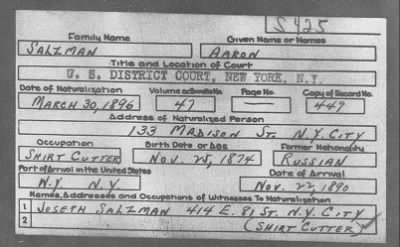 S425
Family Name Given Name or Names
SALZMAN AARON
Title and Location of Court
U. S. DISTRICT COURT, NEW YORK, N.Y.
Date of Naturalization Volume or Bundle No. Page No. Copy of Record No.
MARCH 30, 1896 47 — 449
Address of Naturalized Person
133 MADISON ST. N.Y. CITY
Occupation Birth Date or Age Former Nationality
SHIRT CUTTER NOV. 25, 1874 RUSSIAN
Port of Arrival in the United States Date of Arrival
N.Y. N.Y. NOV. 22, 1890
Names, Addresses and Occupations of Witnesses To Naturalization
1 JOSEPH SALZMAN 414 E. 81 ST. N.Y. CITY
2 (SHIRT CUTTER)